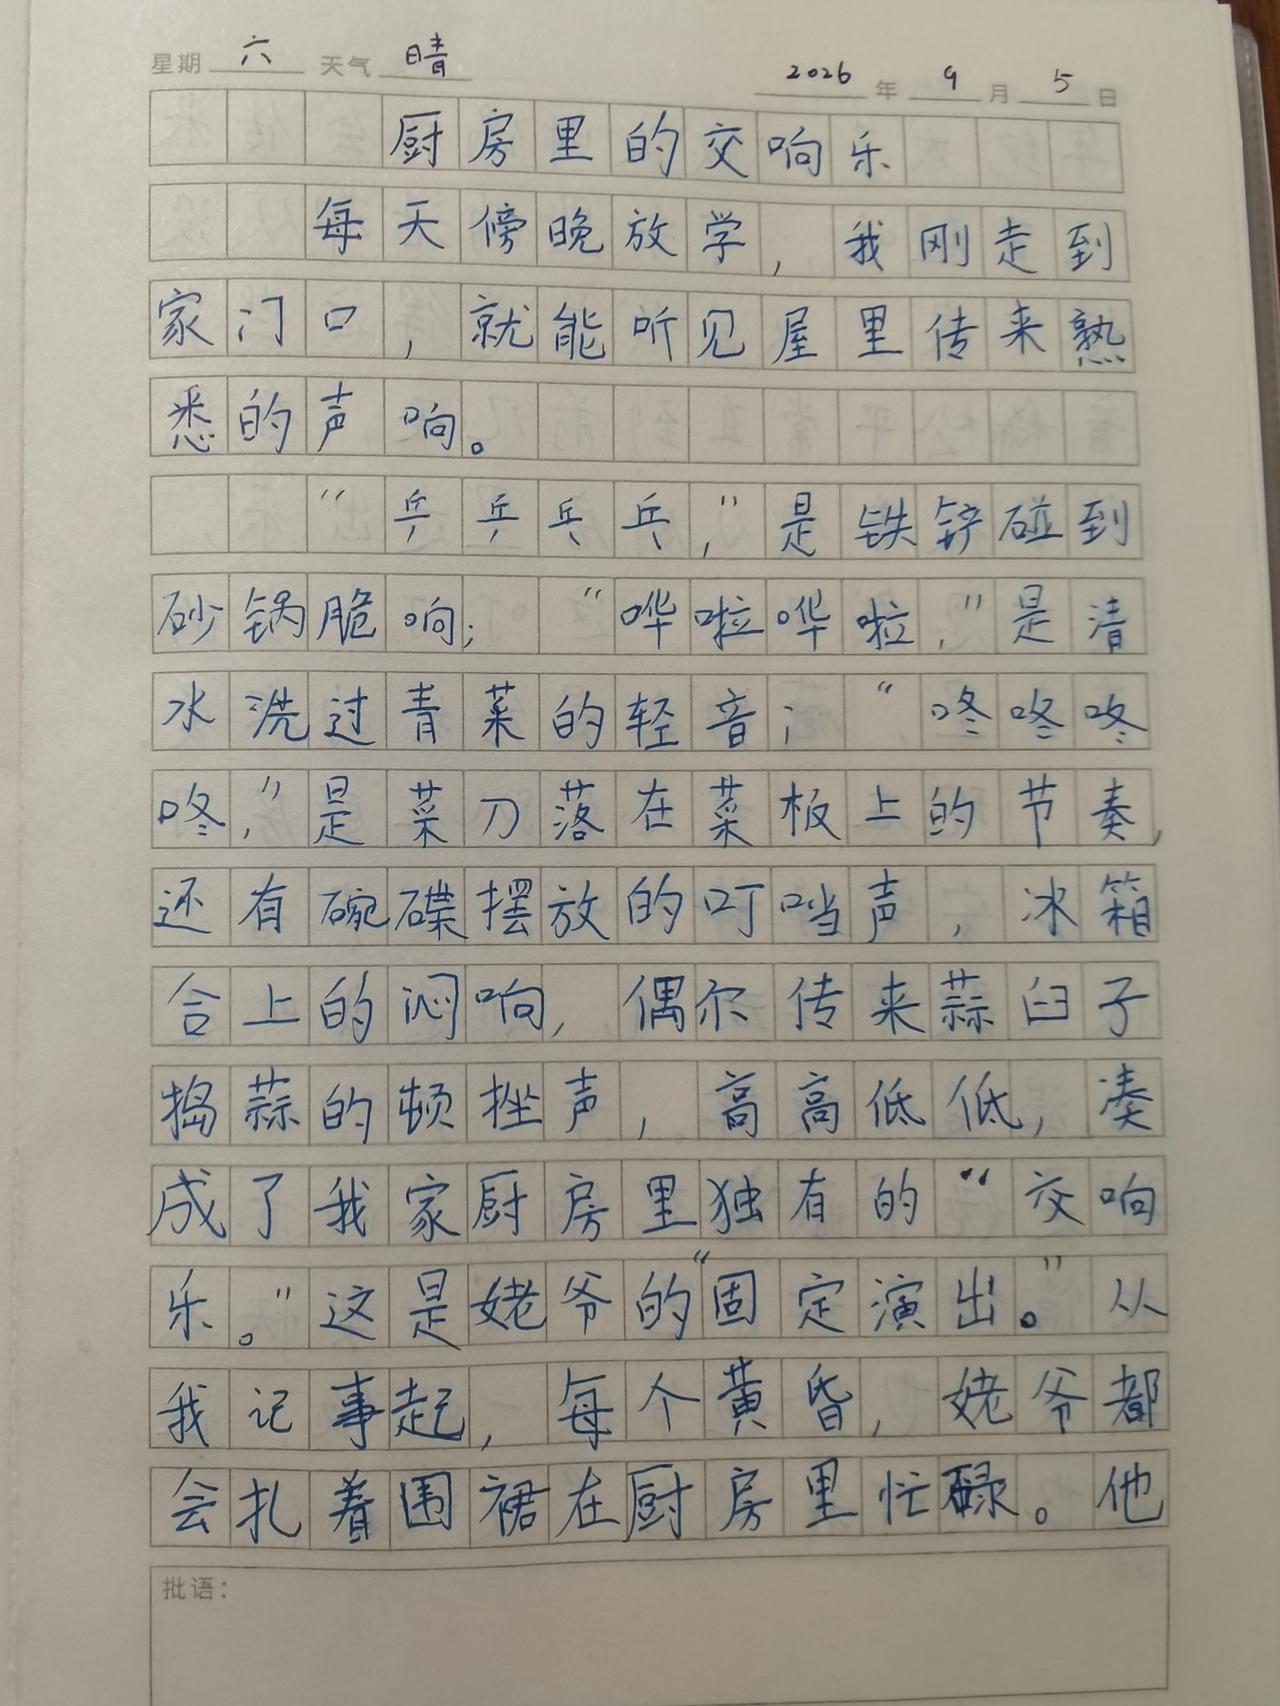 星期 六 天气 晴 2026 年 9 月 5 日
厨房里的交响乐
每天傍晚放学，我刚走到
家门口，就能听见屋里传来熟
悉的声响。
“乒乒乓乓，”是铁锅碰到
砂锅脆响；“哗啦哗啦，”是清
水洗过青菜的轻音；“咚咚咚
咚，”是菜刀落在菜板上的节奏，
还有碗碟摆放的叮当声，冰箱
合上的闷响，偶尔传来蒜臼子
捣蒜的顿挫声，高高低低，凑
成了我家厨房里独有的“交响
乐。”这是姥爷的“固定演出。”从
我记事起，每个黄昏，姥爷都
会扎着围裙在厨房里忙碌。他
批语：